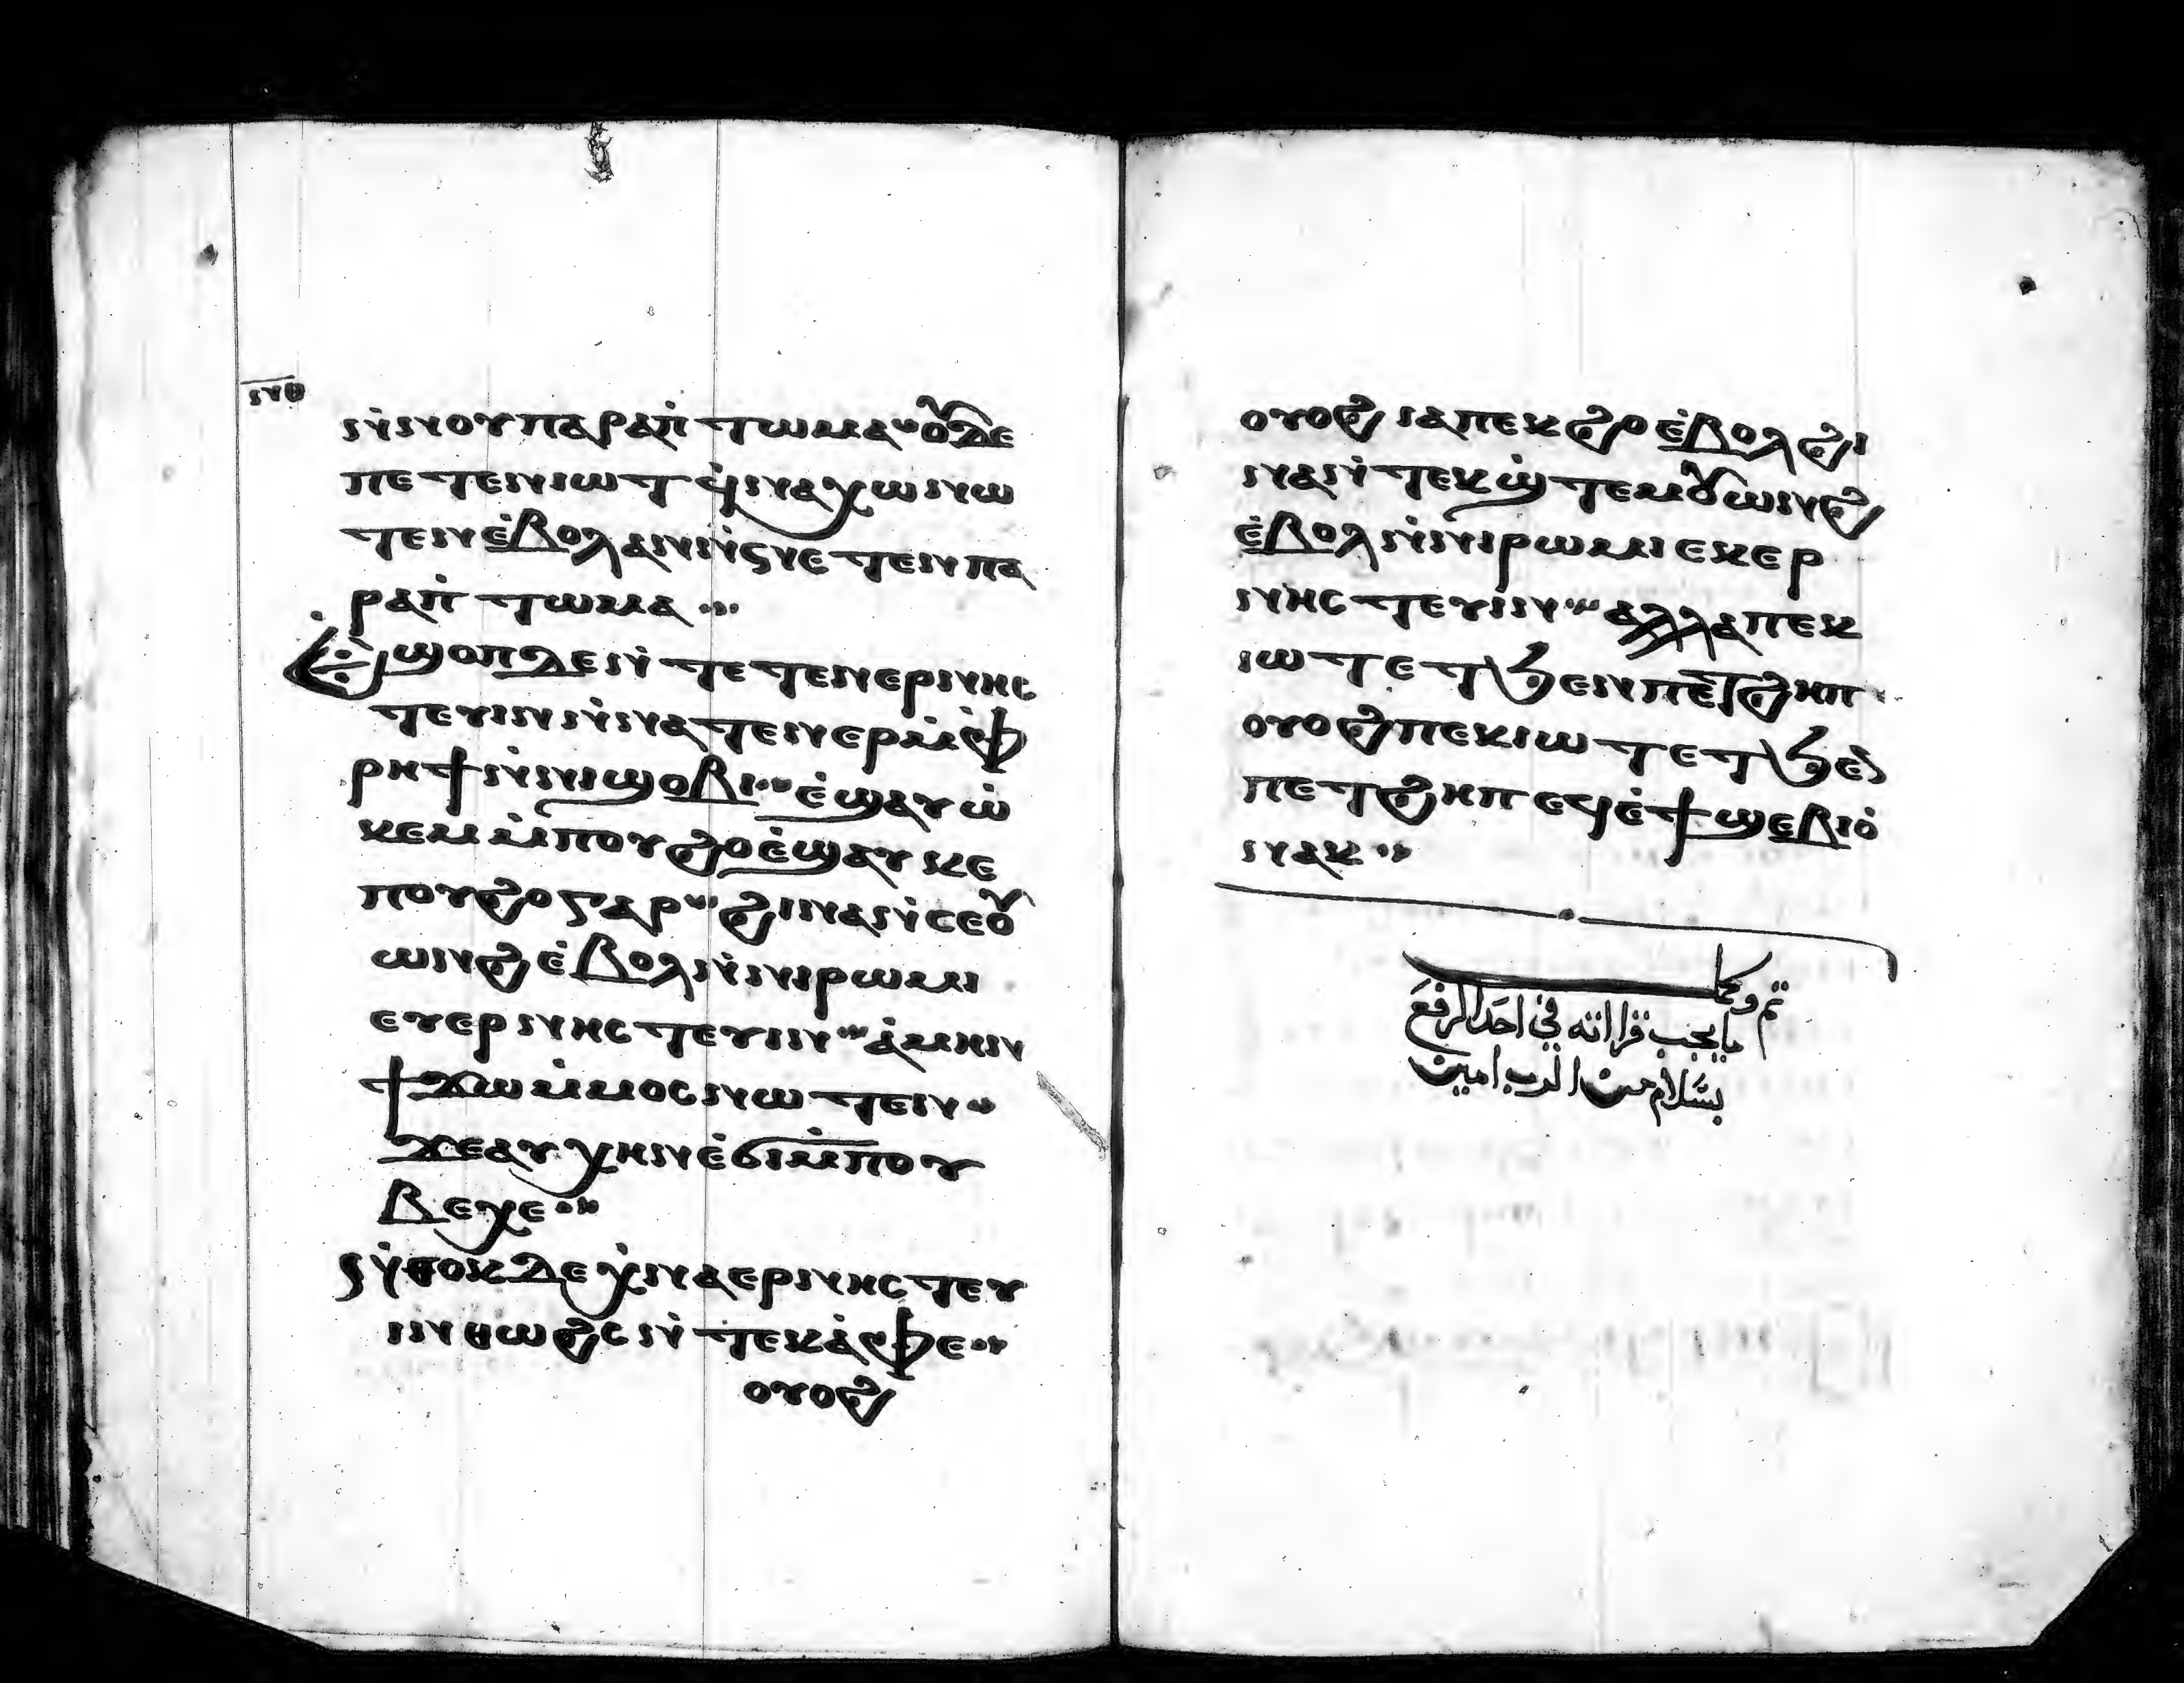 ⲛⲑ
ⲛ̇ⲛⲟⲩⲡⲁⲣⲁⲡ̇ⲧⲱⲙⲁ·· ⲟⲩⲇⲉ
ⲡⲉⲧⲉⲛⲓⲱⲧ ϥ̇ⲛⲁⲭⲱ ⲛⲱ
ⲧⲉⲛ ⲉ̇ⲃⲟⲗ ⲁⲛ ⲛ̇ⲛⲉⲧⲉⲛⲡⲁ
ⲣⲁⲡ̇ⲧⲱⲙⲁ··
Ⲉ̇ϣⲟⲡ ⲇⲉ ⲛ̇ⲧⲉⲧⲉⲛⲉⲣⲛⲏⲥ
ⲧⲉⲩⲓⲛ ⲛ̇ⲛⲁⲧⲉⲛⲉⲣ ⲙ̇ⲫ̇
ⲣⲏϯ ⲛ̇ⲛⲓϣⲟⲃⲓ·· ⲉ̇ϣⲁⲩⲱ̇
ⲕⲉⲙ ⲙ̇ⲡⲟⲩϩⲟ ⲉ̇ϣⲁⲩⲕⲉ
ⲡⲟⲩϩⲟ ⲅⲁⲣ·· ϩⲓⲛⲁ ⲛ̇ⲥⲉⲟⲩ
ⲱⲛϩ ⲉ̇ⲃⲟⲗ ⲛ̇ⲛⲓⲣⲱⲙⲓ
ⲉⲩⲉⲣⲛⲏⲥⲧⲉⲩⲓⲛ·· ⲁ̇ⲙⲏⲛ
ϯϫⲱ ⲙ̇ⲙⲟⲥ ⲛⲱⲧⲉⲛ··
ϫⲉ ⲁⲩⲭⲏⲛ ⲉ̇ϭⲓ ⲙ̇ⲡⲟⲩ
ⲃⲉⲭⲉ··
Ⲛ̇ⲑⲟⲕ ⲇⲉ ⲭ̇ⲛⲁⲉⲣⲛⲏⲥⲧⲉⲩ
ⲓⲛ ⲑⲱϩⲥ ⲛ̇ⲧⲉⲕⲁ̇ⲫⲉ··
ⲟⲩⲟϩ
ⲟⲩⲟϩ ⲓⲁ ⲡⲉⲕϩⲟ ⲉ̇ⲃⲟⲗ ϩⲓ
ⲛⲁ ⲛ̇ⲧⲉⲕϣ̇ⲧⲉⲙⲟⲩⲱⲛϩ
ⲉ̇ⲃⲟⲗ ⲛ̇ⲛⲓⲣⲱⲙⲓ ⲉⲕⲉⲣ
ⲛⲏⲥⲧⲉⲩⲓⲛ·· ⲁⲗⲗⲁ ⲡⲉⲕ
ⲓⲱⲧ ⲉⲧϧⲉⲛ ⲡⲉⲧϩⲏⲡ
ⲟⲩⲟϩ ⲡⲉⲕⲓⲱⲧ ⲉⲧϧⲉⲛ
ⲡⲉⲧϩⲏⲡ ⲉϥⲉ̇ϯϣⲉⲃⲓⲟ̇
ⲛⲁⲕ··
تم وكمل
ما يجب قرااته في احد الرفع
بسلام من الرب امين